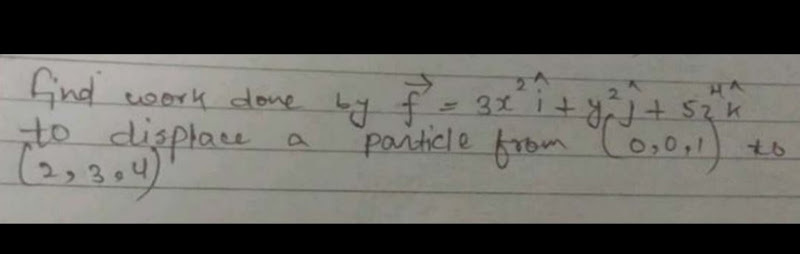 find work done by f⃗ = 3x² î + y² ĵ + 5z⁴ k̂
to displace a particle from (0,0,1) to
(2,3,4)